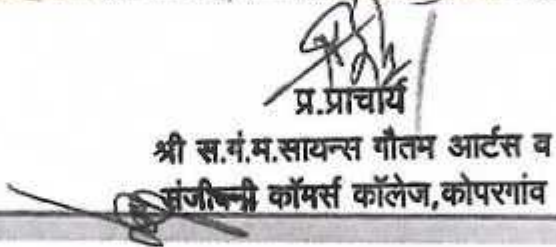 प्र.प्राचार्य
श्री स.गं.म.सायन्स गौतम आर्टस व
संजीवनी कॉमर्स कॉलेज,कोपरगांव